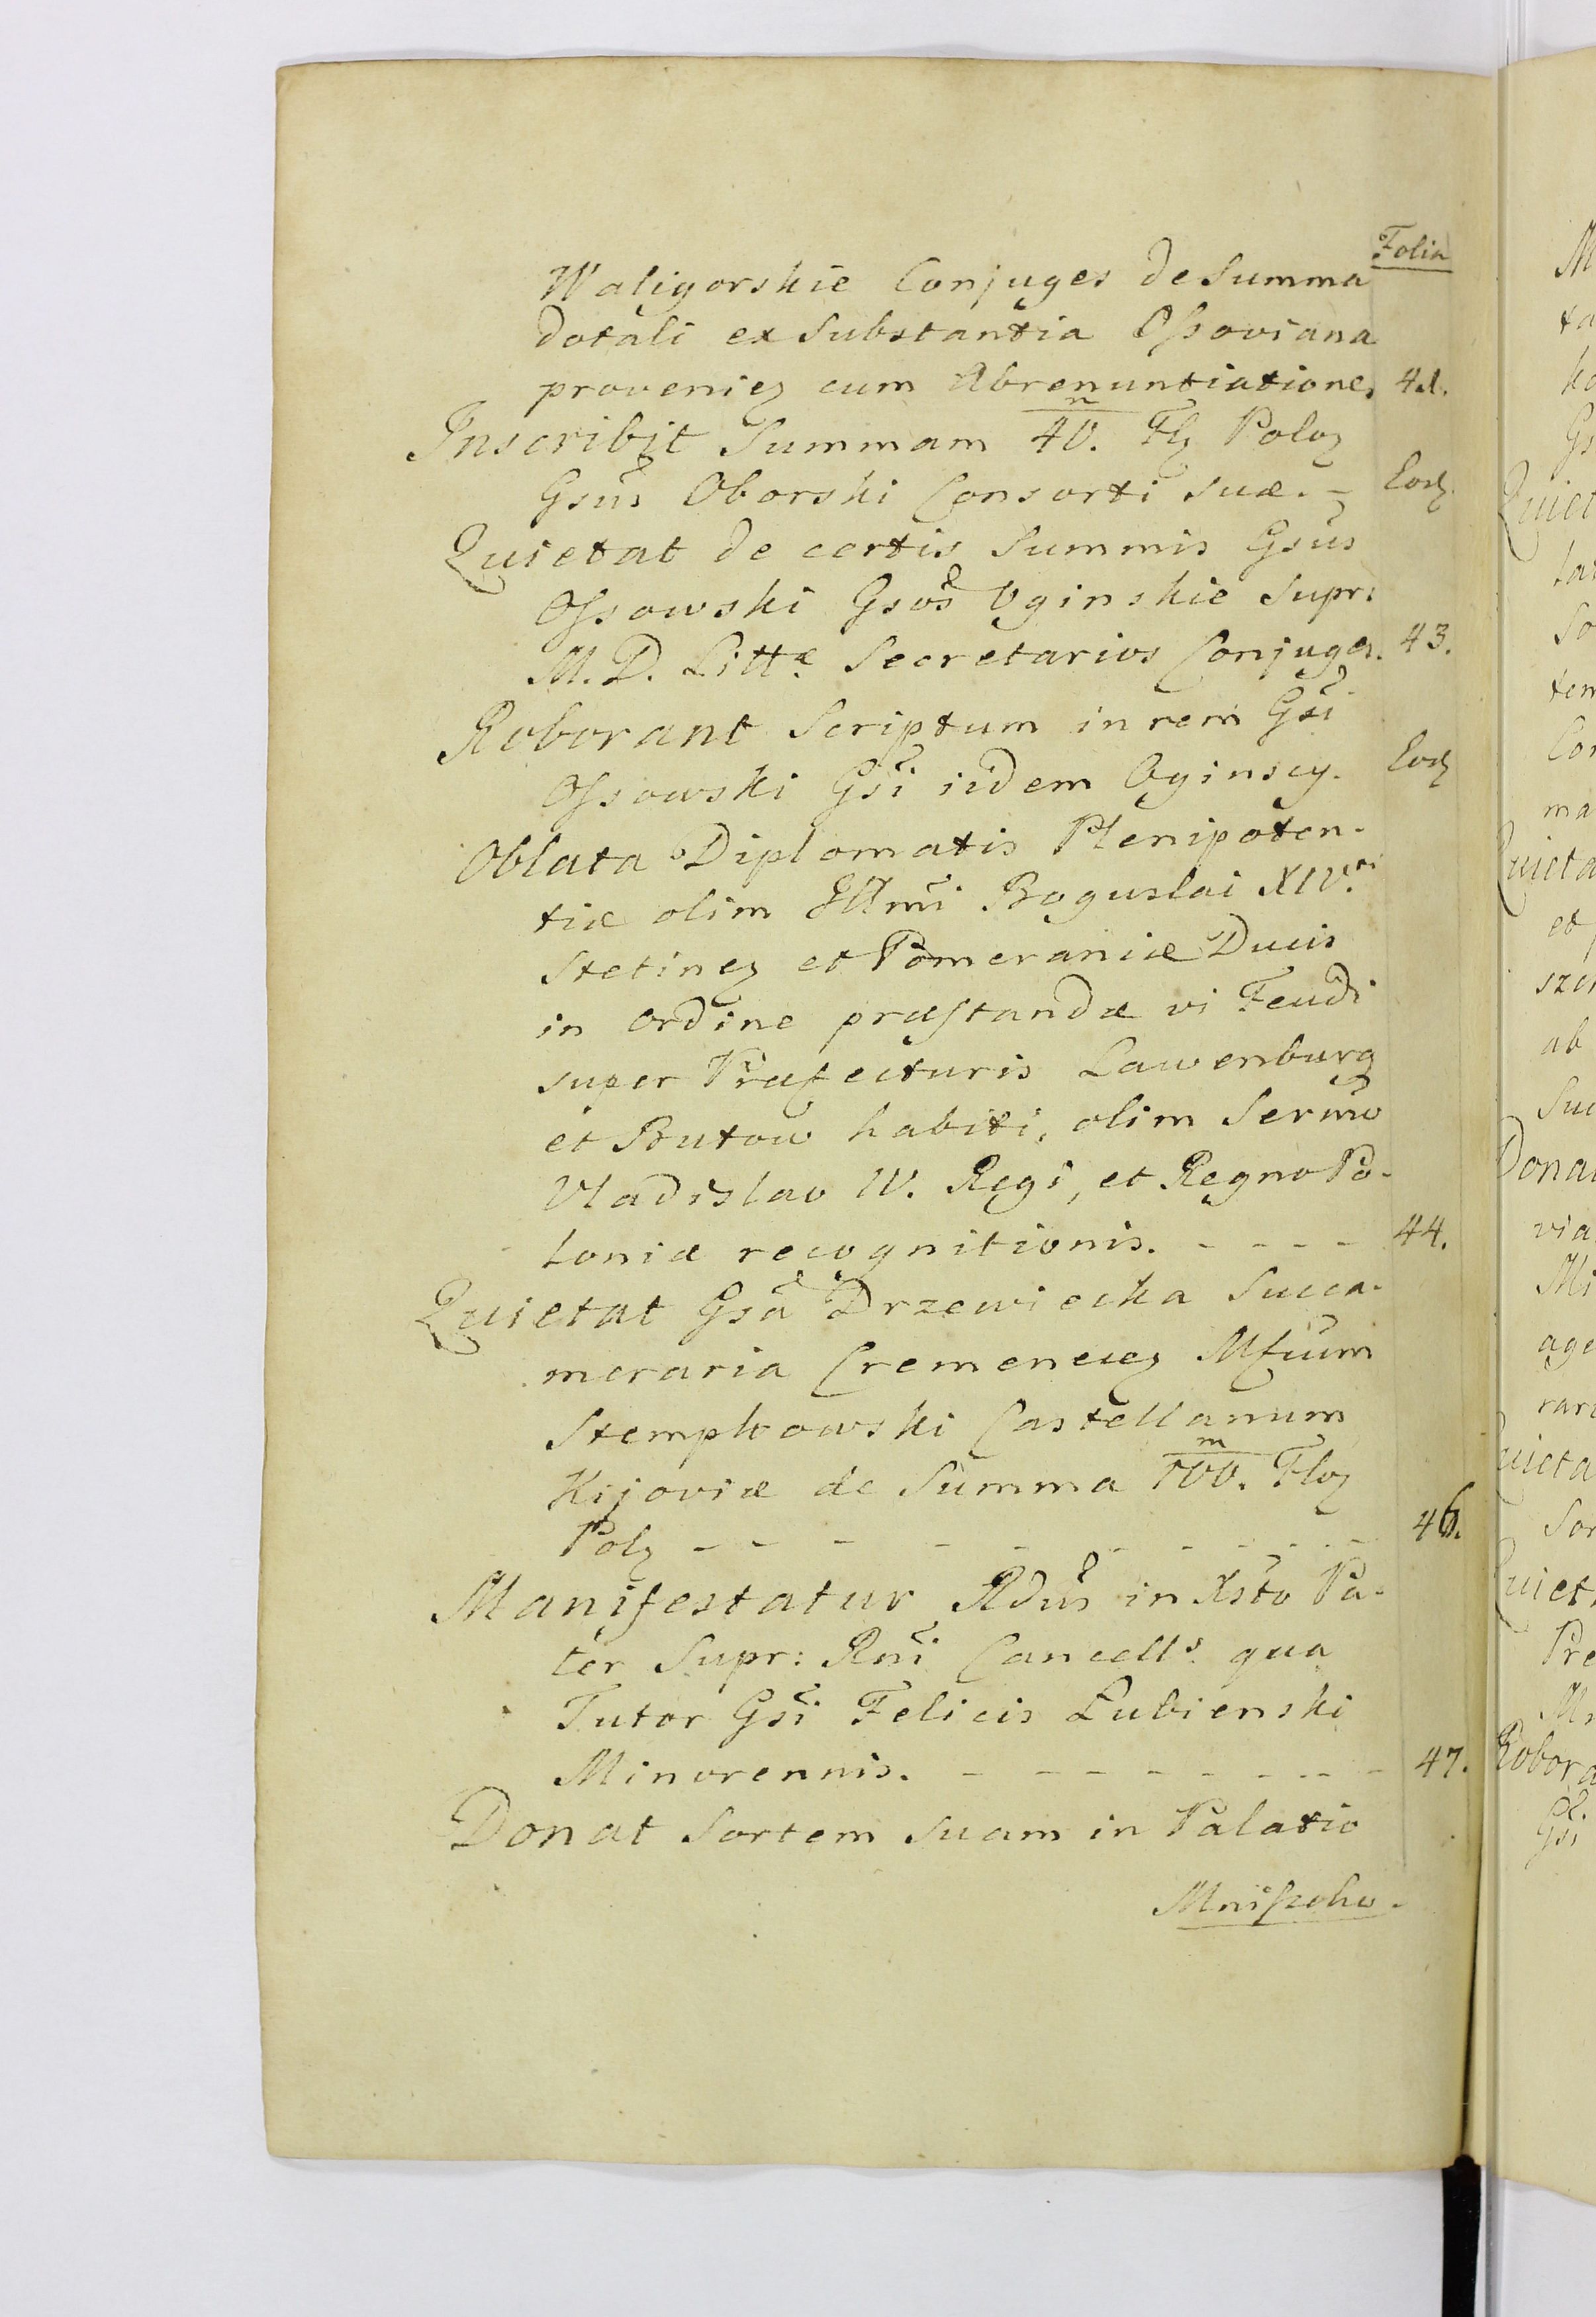 Folia
Waligorskie Conjuges de Summa
dotali ex Substantia Ossoviana
provenien cum Abrenuntiatione, 41.
Inscribit Summam 40.m Fl Polo
Gsus Oborski Consorti suæ. - Eod.
Quietat de certis Summis Gsus
Ossowski Gsos Oginskie Supr:
M. D. Littæ Secretarios Conjuges. 43.
Roborant Scriptum in rem Gsi
Ossowski Gsi iidem Oginscy. Eod
Oblata Diplomatis Plenipoten-
tiæ olim Illmi Boguslai XIV.ti
Stetinen et Pomeraniæ Ducis
in ordine præstandæ vi Feudi
super Præfecturis Lawenburg
et Butow habiti, olim Sermo
Vladislao IV. Regi, et Regno Po-
loniæ recognitionis. - - - - 44.
Quietat Gsa Drzewiecka Succa-
meraria Cremenecen Mficum
Stempkowski Castellanum
Kijoviæ de Summa 100.m Flo
Pol - - - - - - - - - 46.
Manifestatur Rdus in Xsto Pa-
ter Supr: Rni Cancells qua
Tutor Gsi Felicis Lubienski
Minorennis. - - - - - - - - 47.
Donat Sortem suam in Palatio
Mniszcho-
M
ta
ko
Gs
Quiet
tar
So
tem
Con
ma
Quieta
et
szen
ab
Suc
Dona
via
Mi
age
rar
Quieta
Sor
Quiet
Pre
Mn
Robora
Gsi